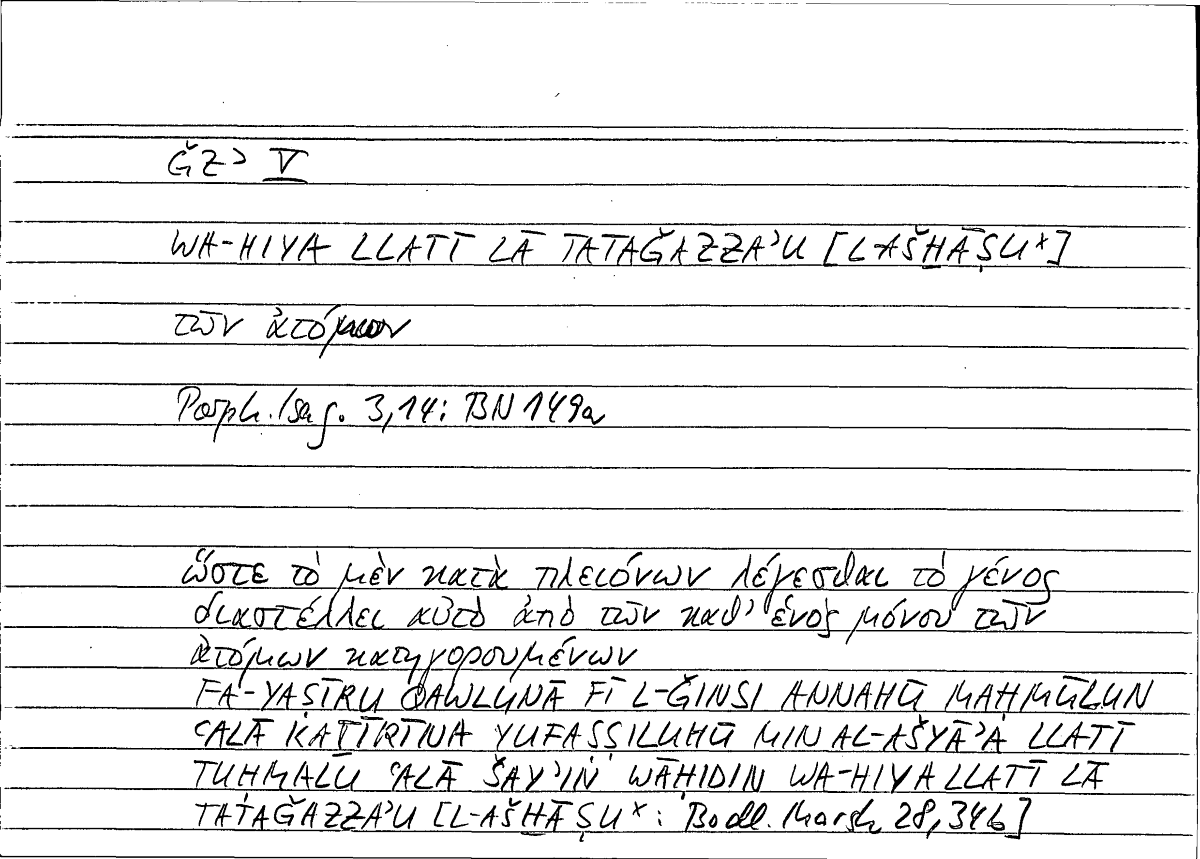 ǦZʾ V
WA-HIYA LLATĪ LĀ TATAǦAZZAʾU [L-AŠH̱ĀṢU*]
τῶν ἀτόμων
Porph. Isag. 3,14: BN 149a
ὥστε τὸ μὲν κατὰ πλειόνων λέγεσθαι τὸ γένος
διαστέλλει αὐτὸ ἀπὸ τῶν καθ’ ἑνὸς μόνου τῶν
ἀτόμων κατηγορουμένων
FA-YAṢĪRU QAWLUNĀ FĪ L-ǦINSI ANNAHŪ MAḤMŪLUN
ʿALĀ KAṮĪRĪNA YUFAṢṢILUHŪ MIN AL-AŠYĀʾA LLATĪ
TUḤMALU ʿALĀ ŠAYʾIN WĀḤIDIN WA-HIYA LLATĪ LĀ
TATAǦAZZAʾU [L-AŠH̱ĀṢU*: Bodl. Marsh 28,34b]